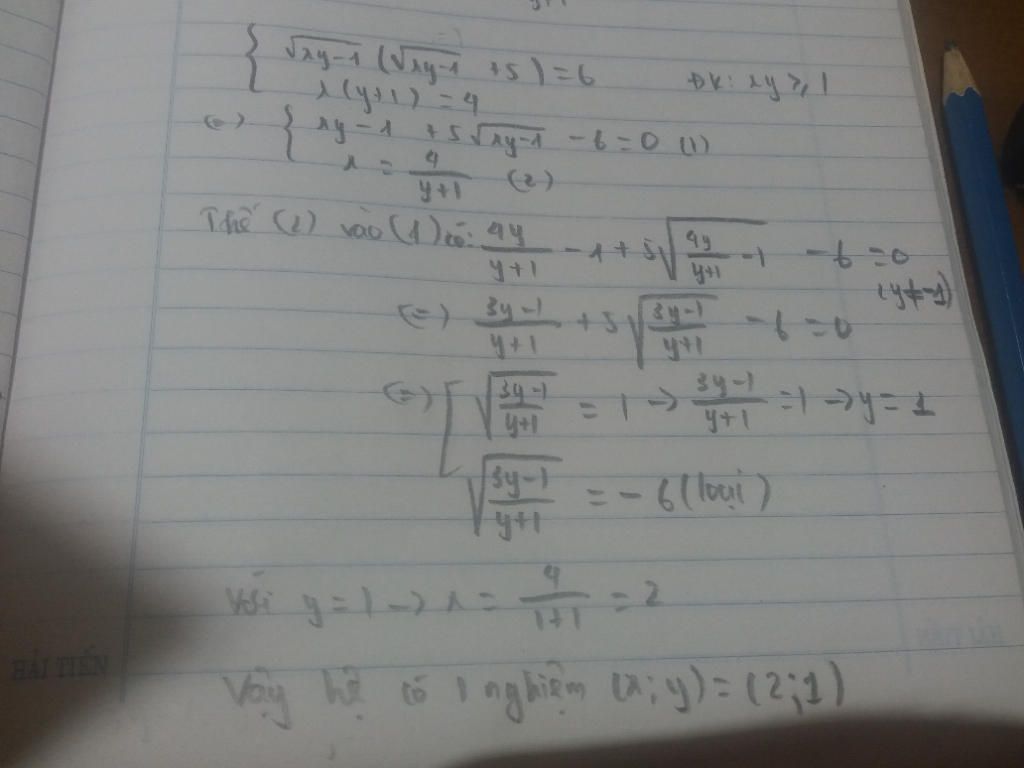 { √(xy-1) (√(xy-1) +5) = 6 ĐK: xy ≥ 1
x(y+1) = 4
(=) { xy - 1 + 5√(xy-1) - 6 = 0 (1)
x = 4/(y+1) (2)
Thế (2) vào (1) có: 4y/(y+1) - 1 + 5√(4y/(y+1) - 1) - 6 = 0
(y≠-1)
(=) (3y-1)/(y+1) + 5√((3y-1)/(y+1)) - 6 = 0
(=) [ √((3y-1)/(y+1)) = 1 → (3y-1)/(y+1) = 1 → y = 1
√((3y-1)/(y+1)) = - 6 (loại)
Với y = 1 → x = 4/(1+1) = 2
HẢI TIẾN
Vậy hệ có 1 nghiệm (x; y) = (2; 1)